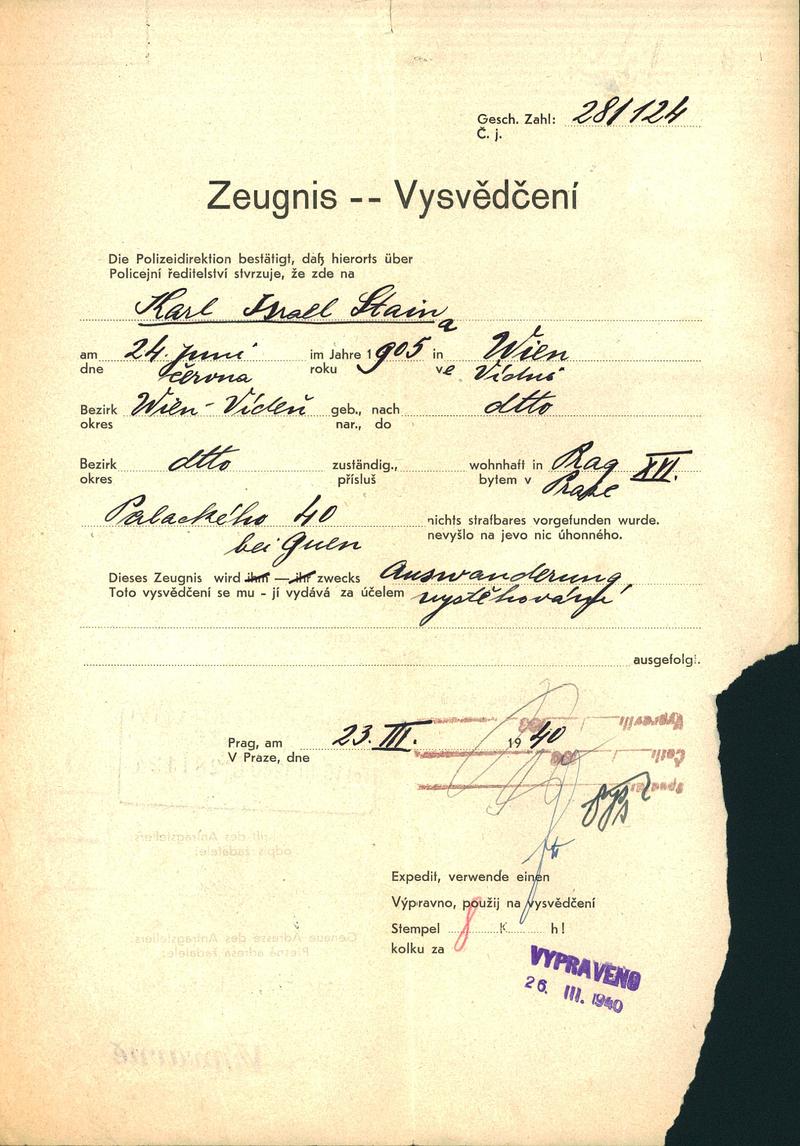 Gesch. Zahl: 281124
Č. j.
Zeugnis -- Vysvědčení
Die Polizeidirektion bestätigt, daß hierorts über
Policejní ředitelství stvrzuje, že zde na
Karl Israel Stain
a
am 24. Juni im Jahre 1905 in Wien
dne června roku ve Vídni
Bezirk Wien - Vídeň geb., nach dtto
okres nar., do
Bezirk dtto zuständig., wohnhaft in Prag XVI.
okres přísluš bytem v Praze
Palackého 40 nichts strafbares vorgefunden wurde.
bei Guen nevyšlo na jevo nic úhonného.
Dieses Zeugnis wird ihm — ihr zwecks Auswanderung
Toto vysvědčení se mu - jí vydává za účelem vystěhování
ausgefolgt.
Prag, am 23. III. 1940
V Praze, dne
Expedit, verwende einen
Výpravno, použij na vysvědčení
Stempel 8 K h!
kolku za
VYPRAVENO
26. III. 1940